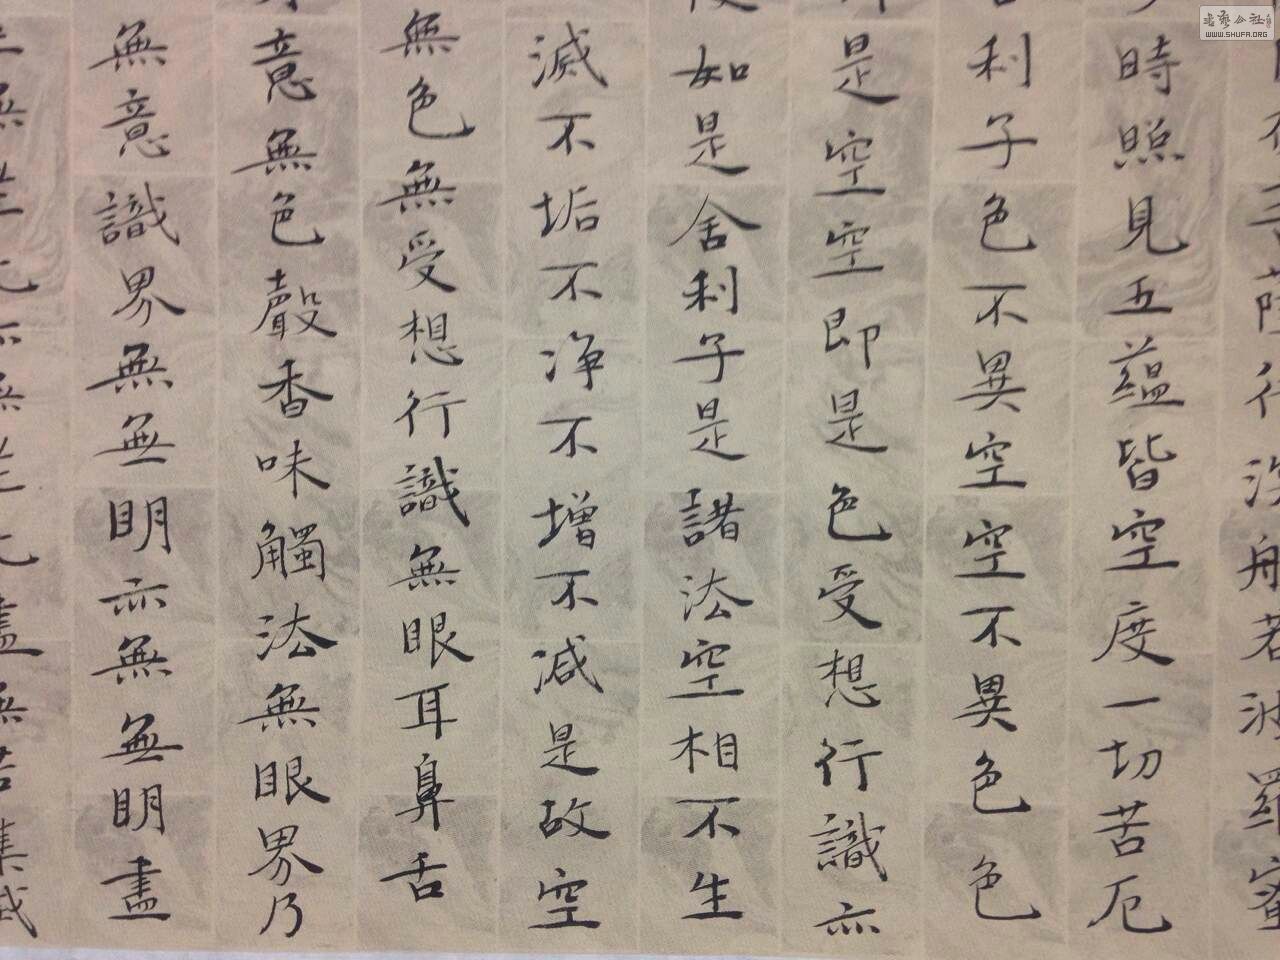 薩行深般若波羅蜜
時照見五蘊皆空度一切苦厄
利子色不異空空不異色色
是空空即是色受想行識亦
如是舍利子是諸法空相不生
滅不垢不净不增不減是故空
無色無受想行識無眼耳鼻舌
意無色聲香味觸法無眼界乃
無意識界無無明亦無無明盡
無老死亦無老死盡無苦集滅
WWW.SHUFA.ORG